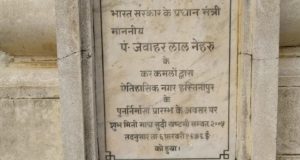 भारत सरकार के प्रधान मंत्री
माननीय
पं॰ जवाहर लाल नेहरु
के
कर कमलों द्वारा
ऐतिहासिक नगर हस्तिनापुर
के
पुनर्निर्माण प्रारम्भ के अवसर पर
शुभ मिती माघ सुदी सम्वत २००५
तदनुसार ६ फरवरी १९४९ ई
को हुआ।